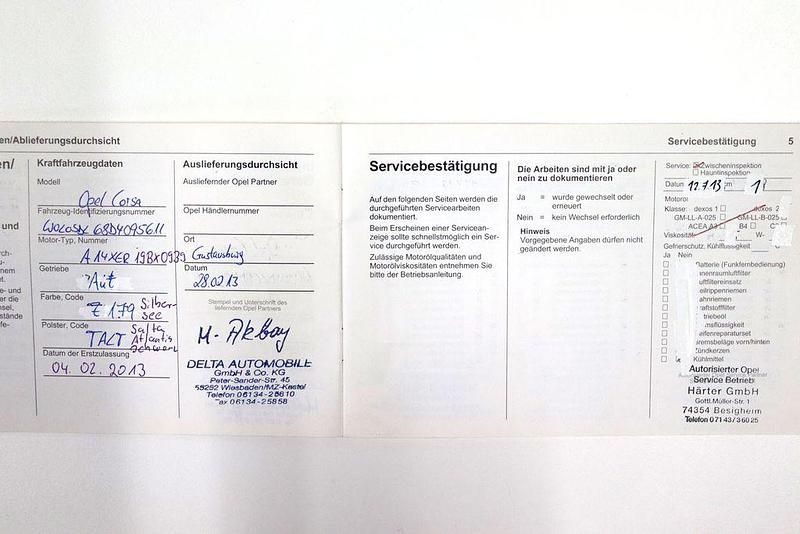 en/Ablieferungsdurchsicht
en/
und
Kraftfahrzeugdaten
Modell
Opel Corsa
Fahrzeug-Identifizierungsnummer
W0L0SDL 68D4095611
Motor-Typ, Nummer
A 14XER 19BX0989
Getriebe
Aut
Farbe, Code
Z 179 Silbersee
Polster, Code
TALT Salta Atlantis schwarz
Datum der Erstzulassung
04. 02. 2013
Auslieferungsdurchsicht
Ausliefernder Opel Partner
Opel Händlernummer
Ort
Gustavsburg
Datum
28.02.13
Stempel und Unterschrift des
liefernden Opel Partners
M. Akbay
DELTA AUTOMOBILE
GmbH & Co. KG
Peter-Sander-Str. 45
55252 Wiesbaden/MZ-Kastel
Telefon 06134-25810
Fax 06134-25858
Servicebestätigung
Auf den folgenden Seiten werden die
durchgeführten Servicearbeiten
dokumentiert.
Beim Erscheinen einer Servicean-
zeige sollte schnellstmöglich ein Ser-
vice durchgeführt werden.
Zulässige Motorölqualitäten und
Motorölviskositäten entnehmen Sie
bitte der Betriebsanleitung.
Die Arbeiten sind mit ja oder
nein zu dokumentieren
Ja = wurde gewechselt oder
erneuert
Nein = kein Wechsel erforderlich
Hinweis
Vorgegebene Angaben dürfen nicht
geändert werden.
Servicebestätigung 5
Service: Zwischeninspektion
Hauptinspektion
Datum 12.7.13 km 1
Motoröl
Klasse: dexos 1 dexos 2
GM-LL-A-025 GM-LL-B-025
ACEA A3 B4 C
Viskosität W-
Gefrierschutz, Kühlflüssigkeit
Ja Nein
Batterie (Funkfernbedienung)
nenraumluftfilter
uftfiltereinsatz
eilrippenriemen
ahnriemen
raftstofffilter
triebeöl
emsflüssigkeit
eifenreparaturset
remsbeläge vorn/hinten
ündkerzen
Kühlmittel
Autorisierter Opel
Service Betrieb
Härter GmbH
Gottl.Müller-Str. 1
74354 Besigheim
Telefon 07143/36025